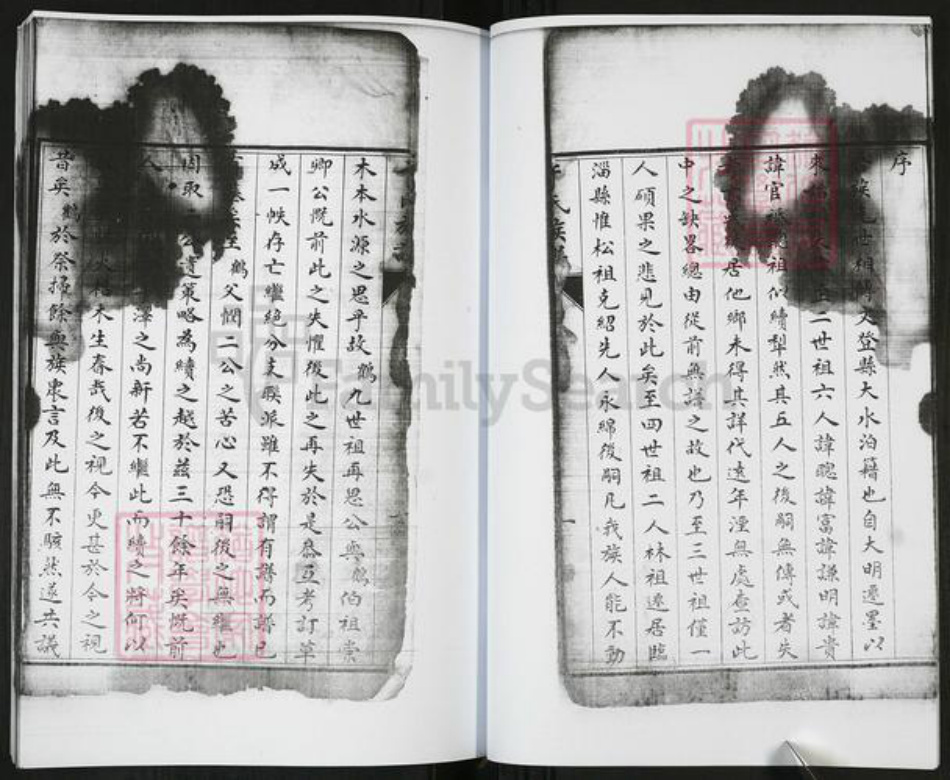 序
矣先世相傳文登縣大水泊籍也自大明遷墨以
來二世祖六人諱聰諱富諱謙明諱貴
諱官祖似續犁然其五人之後嗣無傳或者失
居他鄉未得其詳代遠年湮無處查訪此
中之缺畧總由從前無譜之故也乃至三世祖僅一
人碩果之悲見於此矣至四世祖二人林祖遷居臨
淄縣惟松祖克紹先人永綿後嗣凡我族人能不動
木本水源之思乎故鶴九世祖再思公與鶴伯祖崇
卿公慨前此之失懼後此之再失於是叅互考訂草
成一帙存亡繼絕分支聯派雖不得謂有譜而譜已
矣至鶴父憫二公之苦心又恐嗣後之無繼也
因取二公遺策略為續之越於茲三十餘年矣慨前
人澤之尚新若不繼此而續之將何以
木生春哉後之視今更甚於今之視
昔矣鶴於祭掃餘與族衆言及此無不駭然遂共議
FamilySearch